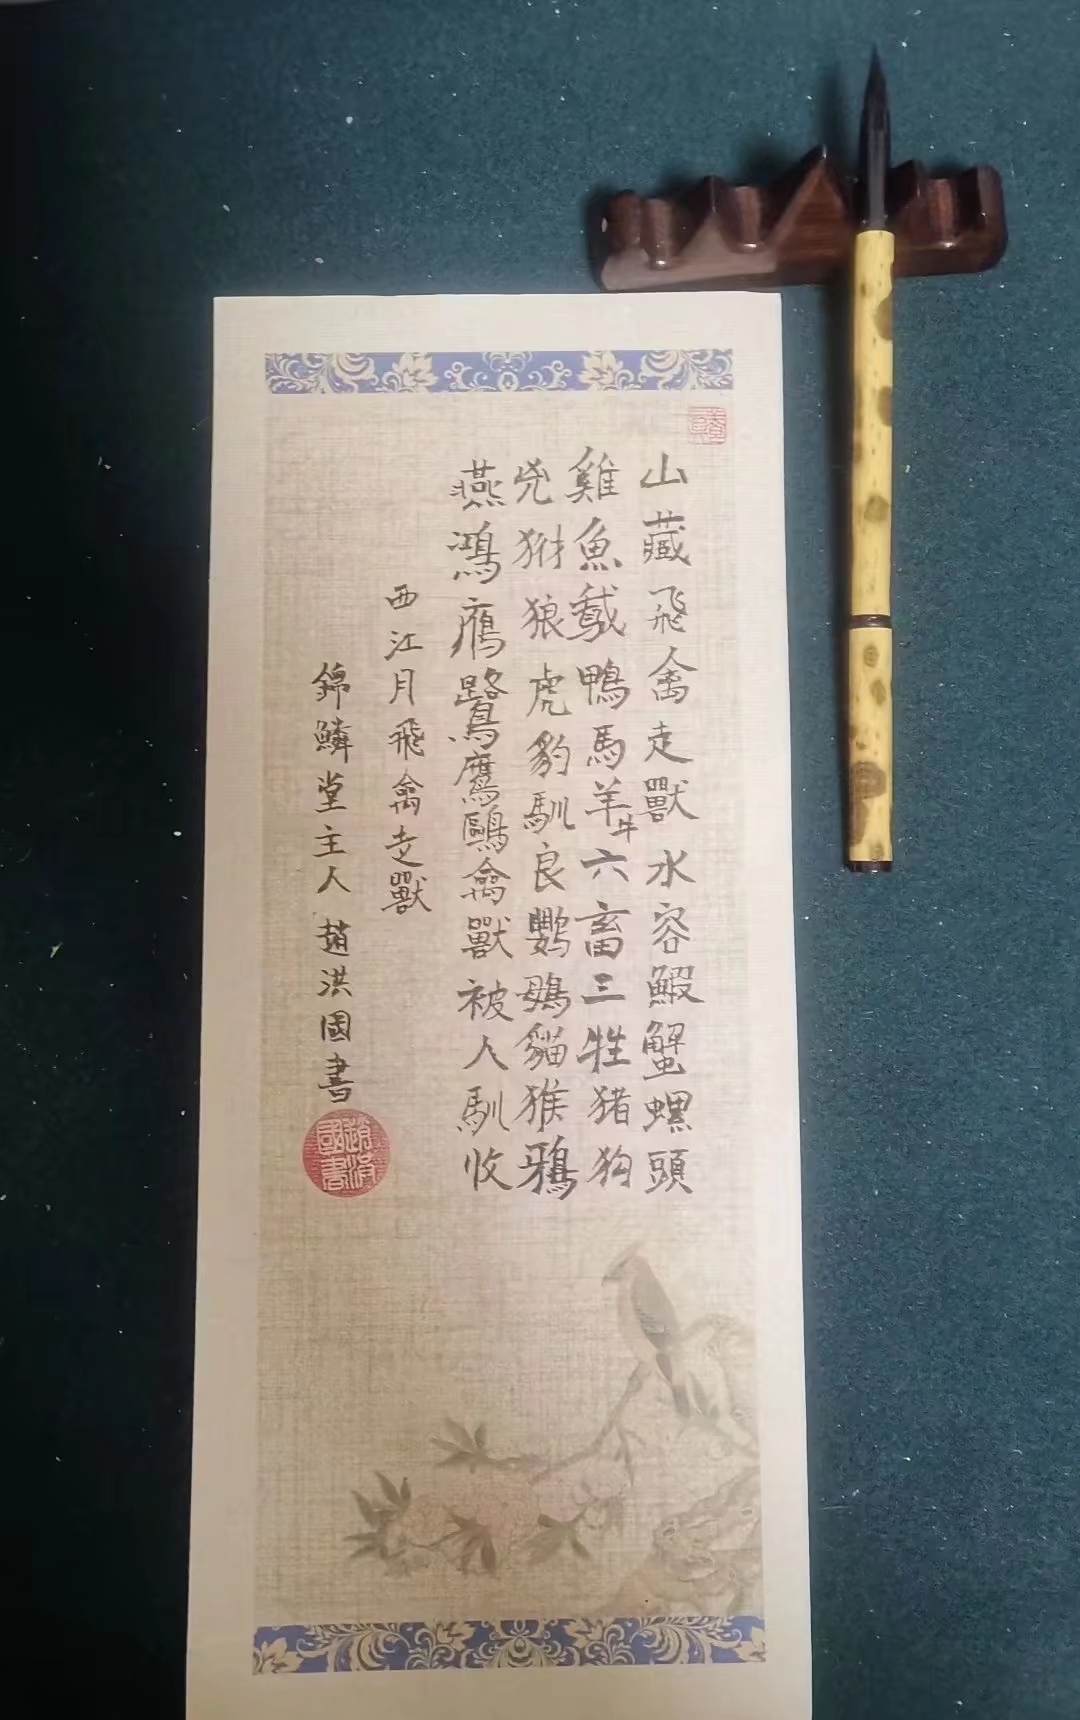 山藏飛禽走獸水容鰕蟹螺頭
雞魚鵞鴨馬羊牛六畜三牲猪狗
兇豺狼虎豹馴良鸚鵡貓猴鴉
燕鴻鴈鷺鷹鷗禽獸被人馴收
西江月飛禽走獸
錦鱗堂主人趙洪國書